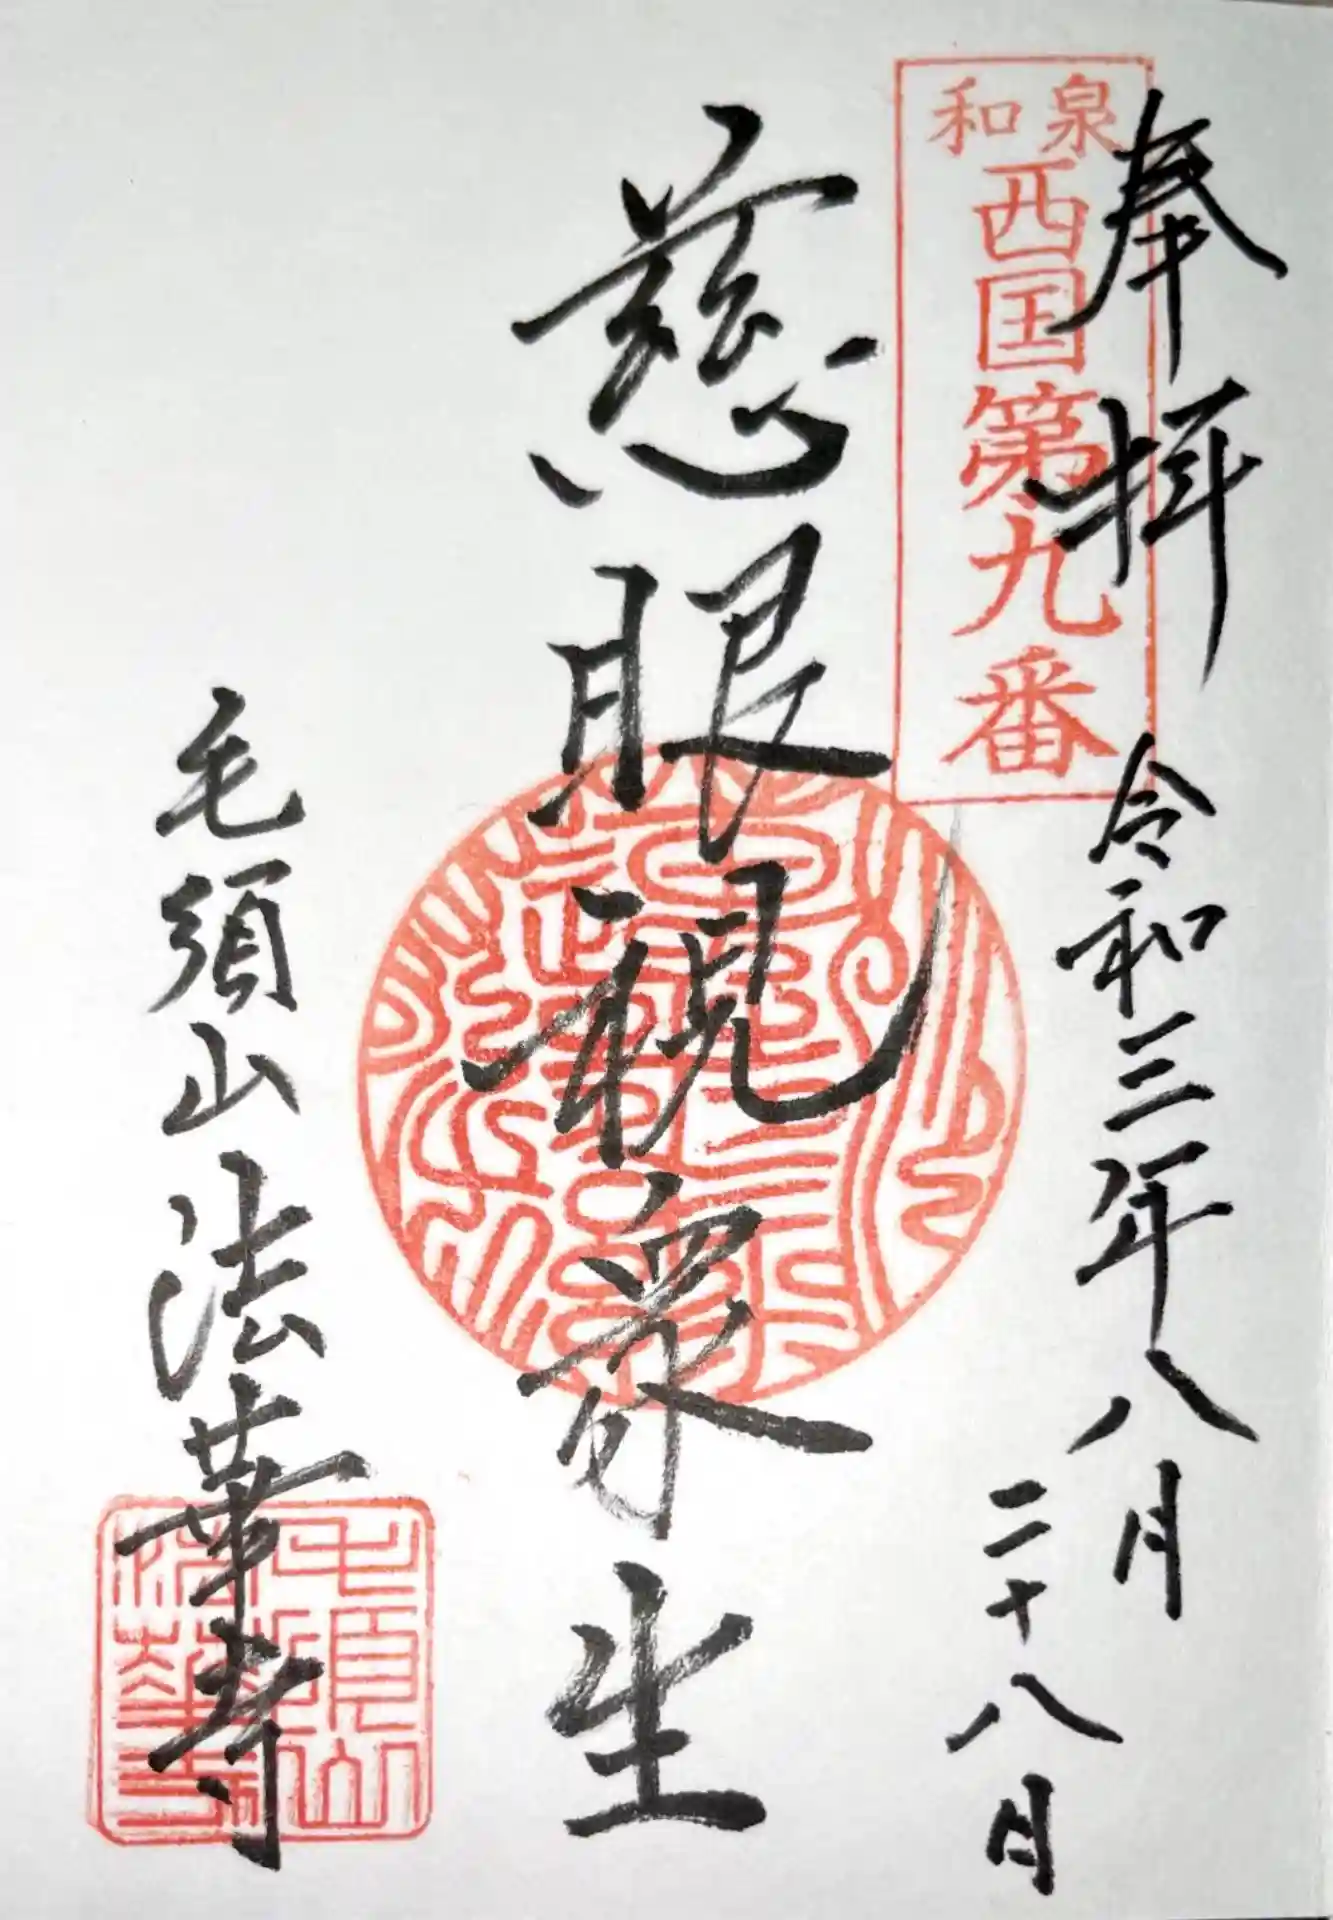 奉拝
令和三年八月
二十八日
和泉
西国第九番
慈眼視衆生
毛須山法華寺
毛須山
法華寺